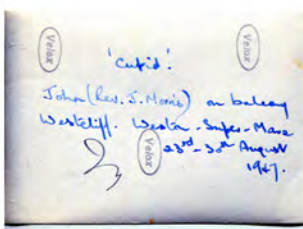 Velox
Velox
'Cupid'.
John (Rev. J. Morris) on balcony
Westcliff. Weston-Super-Mare
Velox
23rd - 30th August
1947.